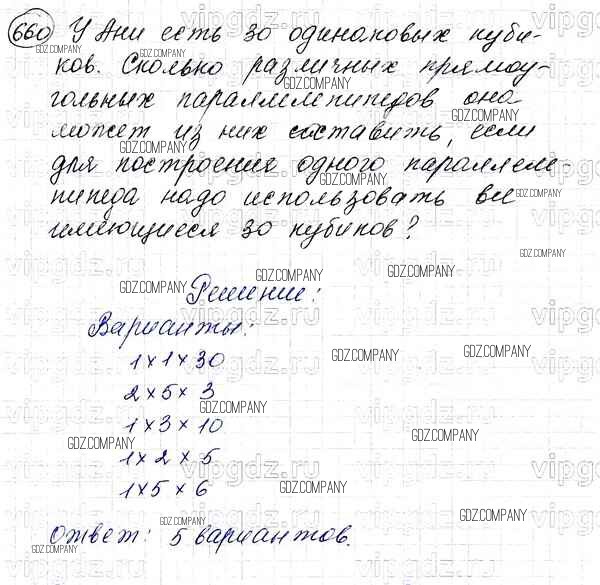 660 У Ани есть 30 одинаковых куби-
ков. Сколько различных прямоу-
гольных параллелепипедов она
может из них составить, если
для построения одного параллеле-
пипеда надо использовать все
имеющиеся 30 кубиков?
Решение:
Варианты:
1×1×30
2×5×3
1×3×10
1×2×5
1×5×6
Ответ: 5 вариантов.
GDZ.COMPANY
vipgdz.ru